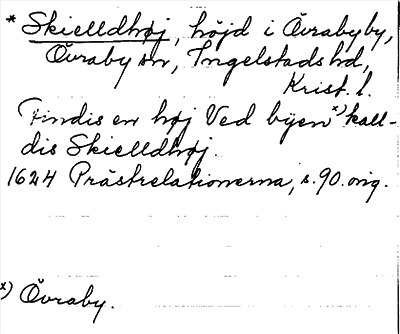 * Skielldhøj, höjd i Övrabyby,
Övraby sn, Ingelstads hd,
Krist. l.
Findis en høj Ved byen x) kall-
dis Skielldhøj.
1624 Prästrelationerna, s. 90. orig.
x) Övraby.